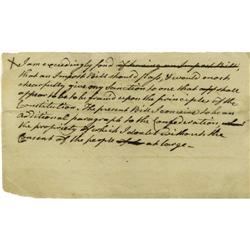 I am exceedingly fond of having an Impost Bill
that an Impost Bill should pass, & would most
chearfully give my Sanction to one that
appear to be to be found upon the principles of the
Constitution. The present Bill I conceive to be an
additional paragraph to the Confederation
the propriety of which I doubt without the
Consent of the people at large